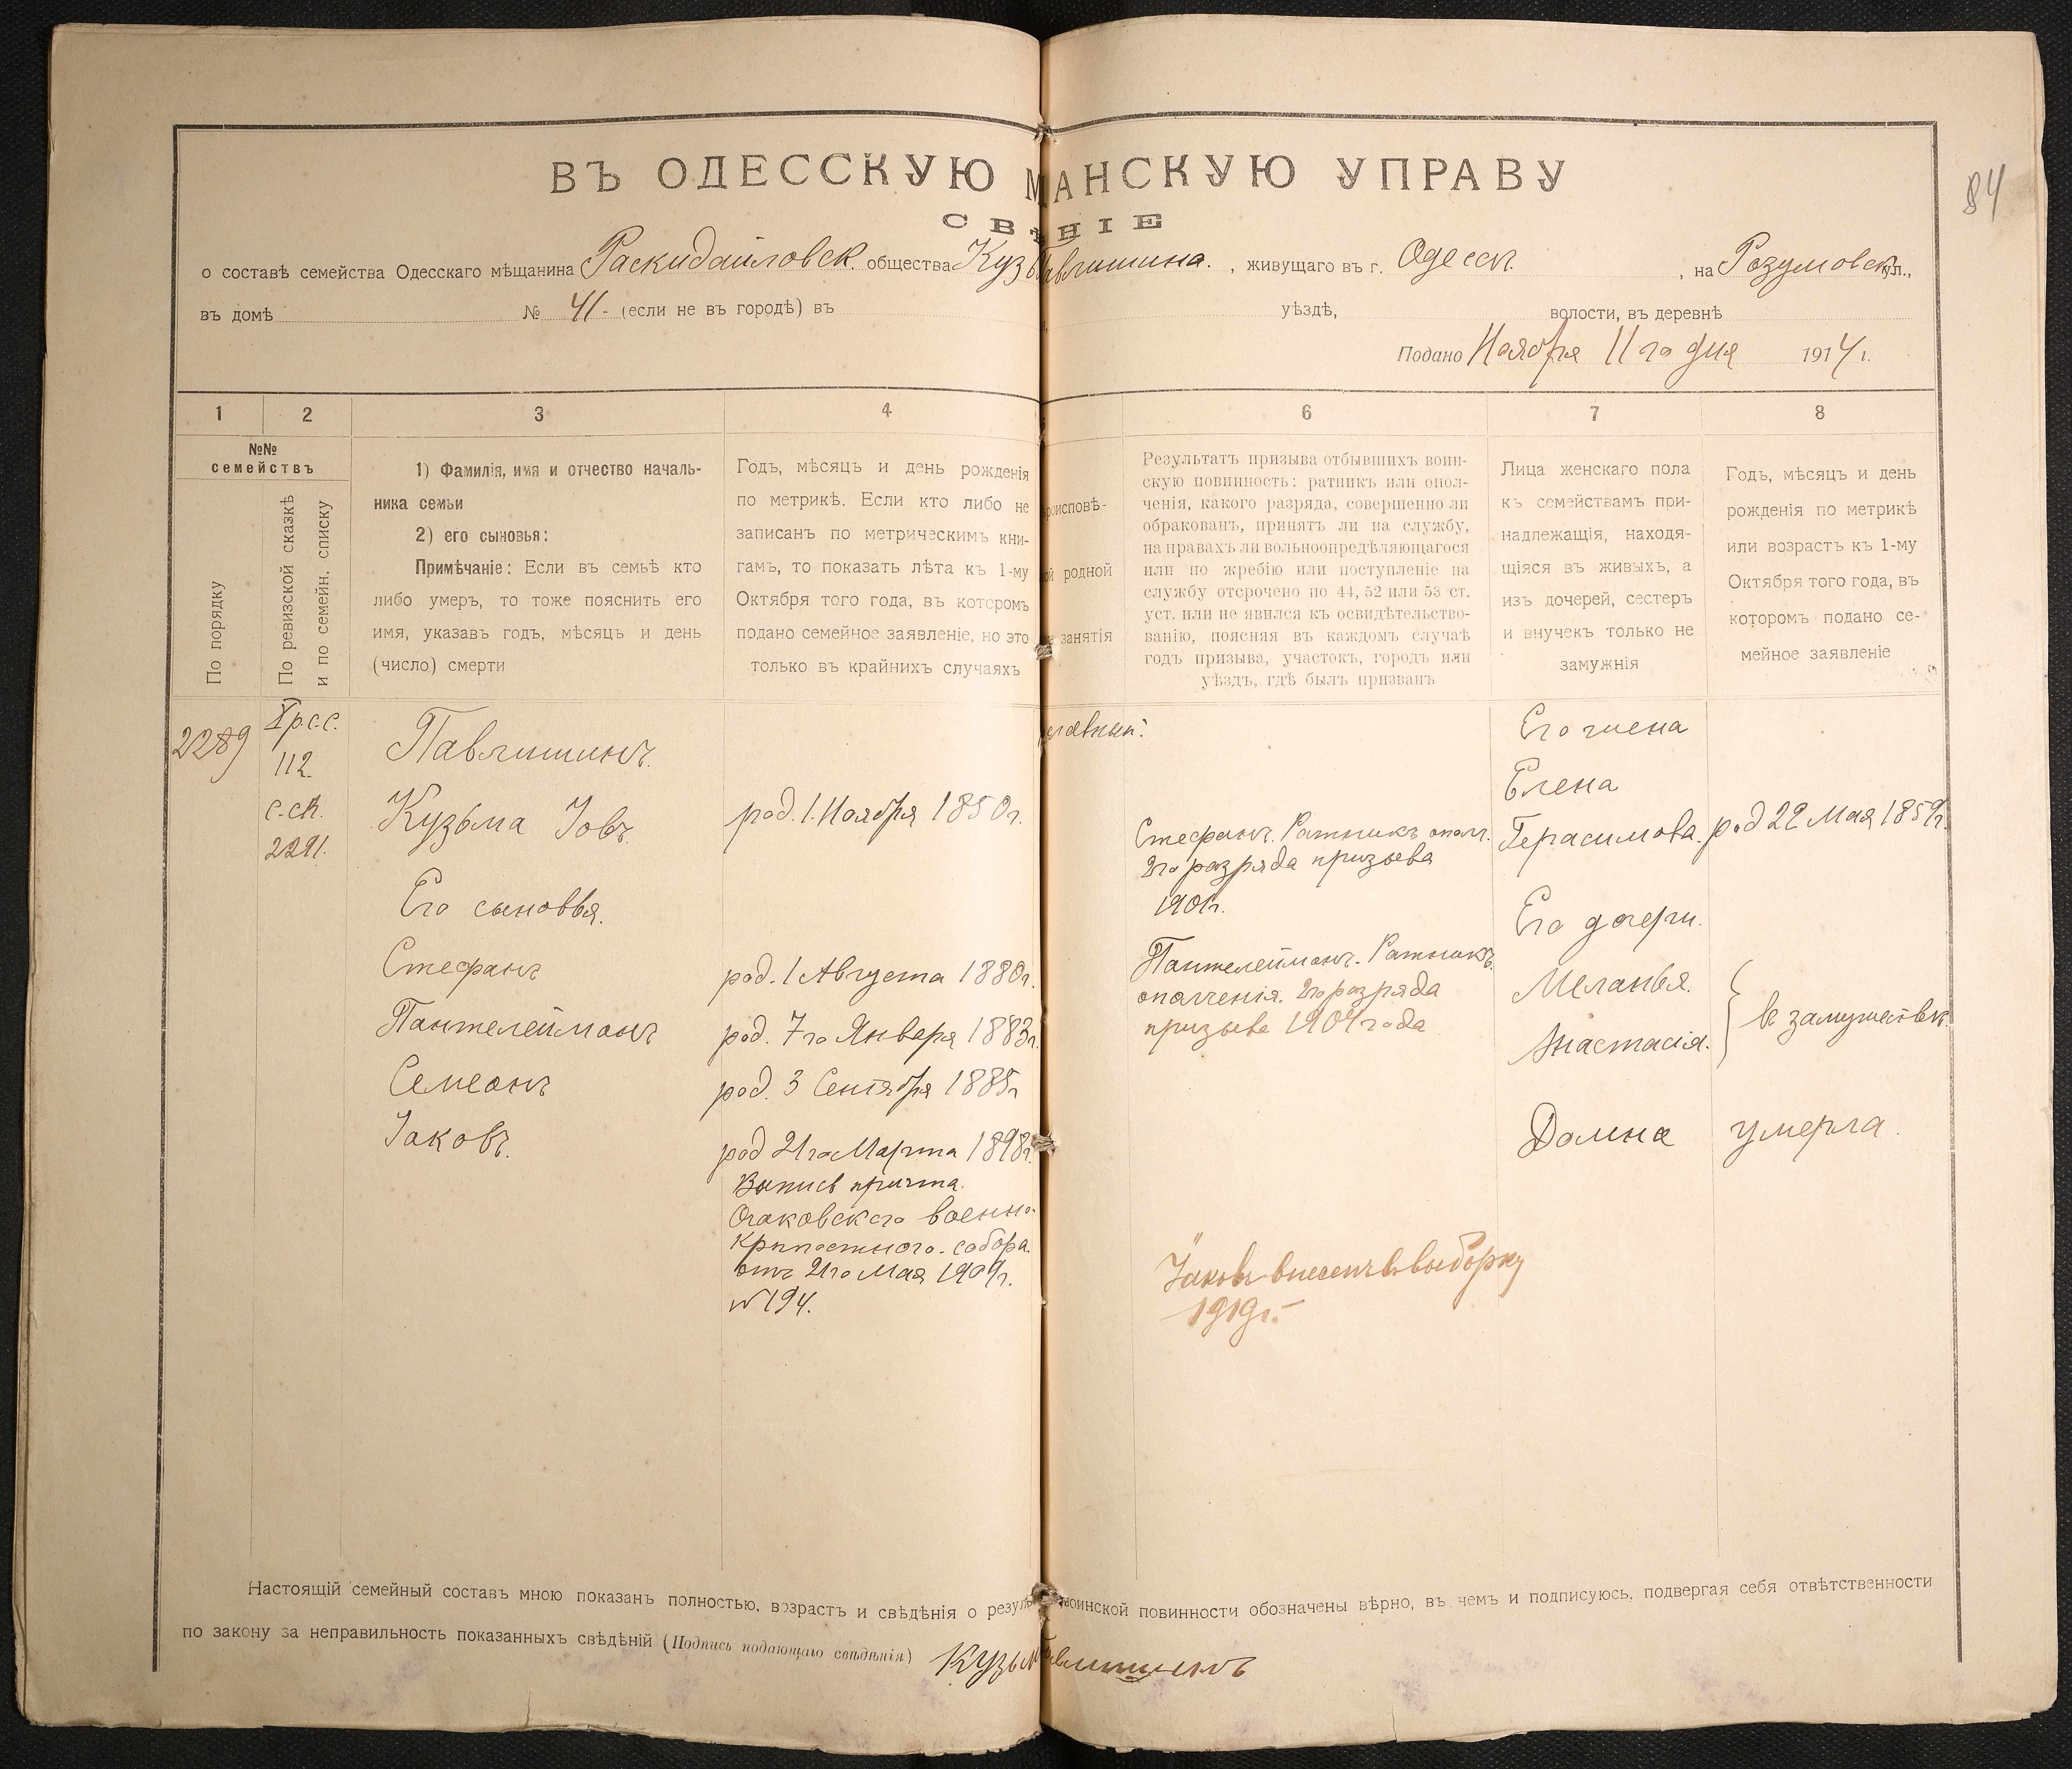 84
ВЪ ОДЕССКУЮ МАНСКУЮ УПРАВУ
СВѢНІЕ
о составѣ семейства Одесскаго мѣщанина Раскидайловск. общества Кузь авлишина. , живущаго въ г. Одессѣ , на Розумовск. ул.,
въ домѣ № 41 - (если не въ городѣ) въ уѣздѣ, волости, въ деревнѣ
Подано Ноября 11 го дня 1914 г.
1 2 3 4 6 7 8
№№ семействъ
По порядку
По ревизской сказкѣ
и по семейн. списку
1) Фамилія, имя и отчество началь-
ника семьи
2) его сыновья:
Примѣчаніе: Если въ семьѣ кто
либо умеръ, то тоже пояснить его
имя, указавъ годъ, мѣсяцъ и день
(число) смерти
Годъ, мѣсяцъ и день рожденія
по метрикѣ. Если кто либо не
записанъ по метрическимъ кни-
гамъ, то показать лѣта къ 1-му
Октября того года, въ которомъ
подано семейное заявленіе, но это
только въ крайнихъ случаяхъ
роисповѣ-
ой родной
занятія
Результатъ призыва отбывшихъ воин-
скую повинность: ратникъ или опол-
ченія, какого разряда, совершенно ли
обракованъ, принятъ ли на службу,
на правахъ ли вольноопредѣляющагося
или по жребію или поступленіе на
службу отсрочено по 44, 52 или 53 ст.
уст. или не явился къ освидѣтельство-
ванію, поясняя въ каждомъ случаѣ
годъ призыва, участокъ, городъ или
уѣздъ, гдѣ былъ призванъ
Лица женскаго пола
къ семействамъ при-
надлежащія, находя-
щіяся въ живыхъ, а
изъ дочерей, сестеръ
и внучекъ только не
замужнія
Годъ, мѣсяцъ и день
рожденія по метрикѣ
или возрастъ къ 1-му
Октября того года, въ
которомъ подано се-
мейное заявленіе
2289
X р.с.с.
112.
с.ск.
2291.
Павлишинъ.
Кузьма Іовъ.
Его сыновья.
Стефанъ
Пантелеймонъ
Семеонъ
Іаковъ.
род. 1. Ноября 1850 г.
род. 1 Августа 1880 г.
род. 7 го Января 1883 г.
род. 3 Сентября 1885 г
род 21 го Марта 1898 г.
Выпись причта
Очаковскаго военно-
крѣпостного собора.
отъ 21 го Мая 1909 г.
№ 194.
славный.
Стефанъ. Ратникъ опол.
2 го разряда призыва
1901 г.
Пантелеймонъ. Ратникъ
ополченія. 2 го разряда
призыва 1904 года
Іаковъ внесенъ въ выборку
1919 г.
Его жена
Елена
Герасимова. род 22 Мая 1859 г.
Его дочери.
Меланья.
Анастасія.
въ замужествѣ
Домна умерла.
Настоящій семейный составъ мною показанъ полностью, возрастъ и свѣдѣнія о резуль воинской повинности обозначены вѣрно, въ чемъ и подписуюсь, подвергая себя отвѣтственности
по закону за неправильность показанныхъ свѣдѣній (Подпись подающаго свѣдѣнія) Кузьм авлишинъ